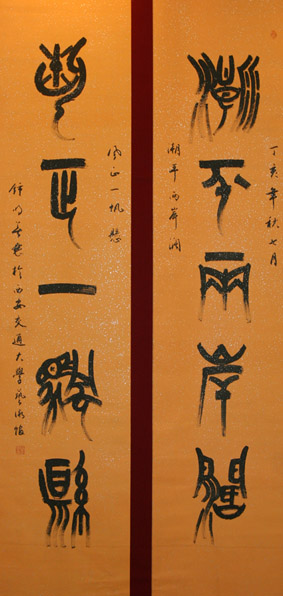 丁亥年秋七月
潮平兩岸闊
潮平兩岸闊
風正一帆懸
風正一帆縣
鍾明善書於西安交通大學藝術館